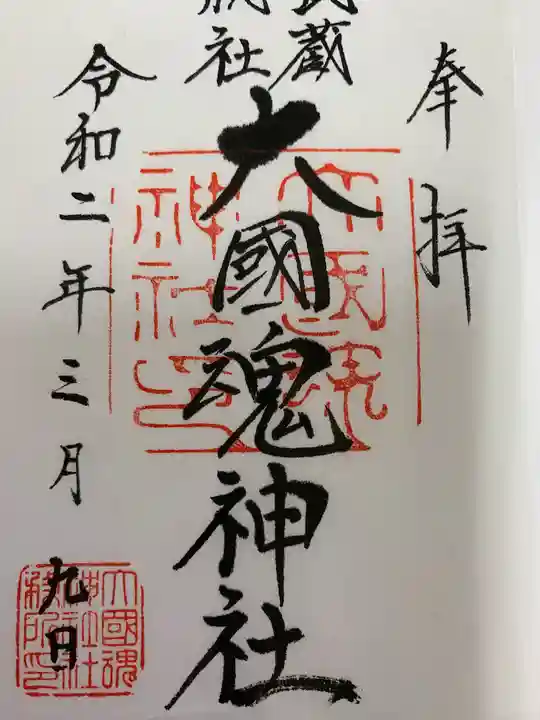 奉拝
武蔵
総社
大國魂神社
令和二年三月
九日
大國魂神社印
大國魂
神社
務所印